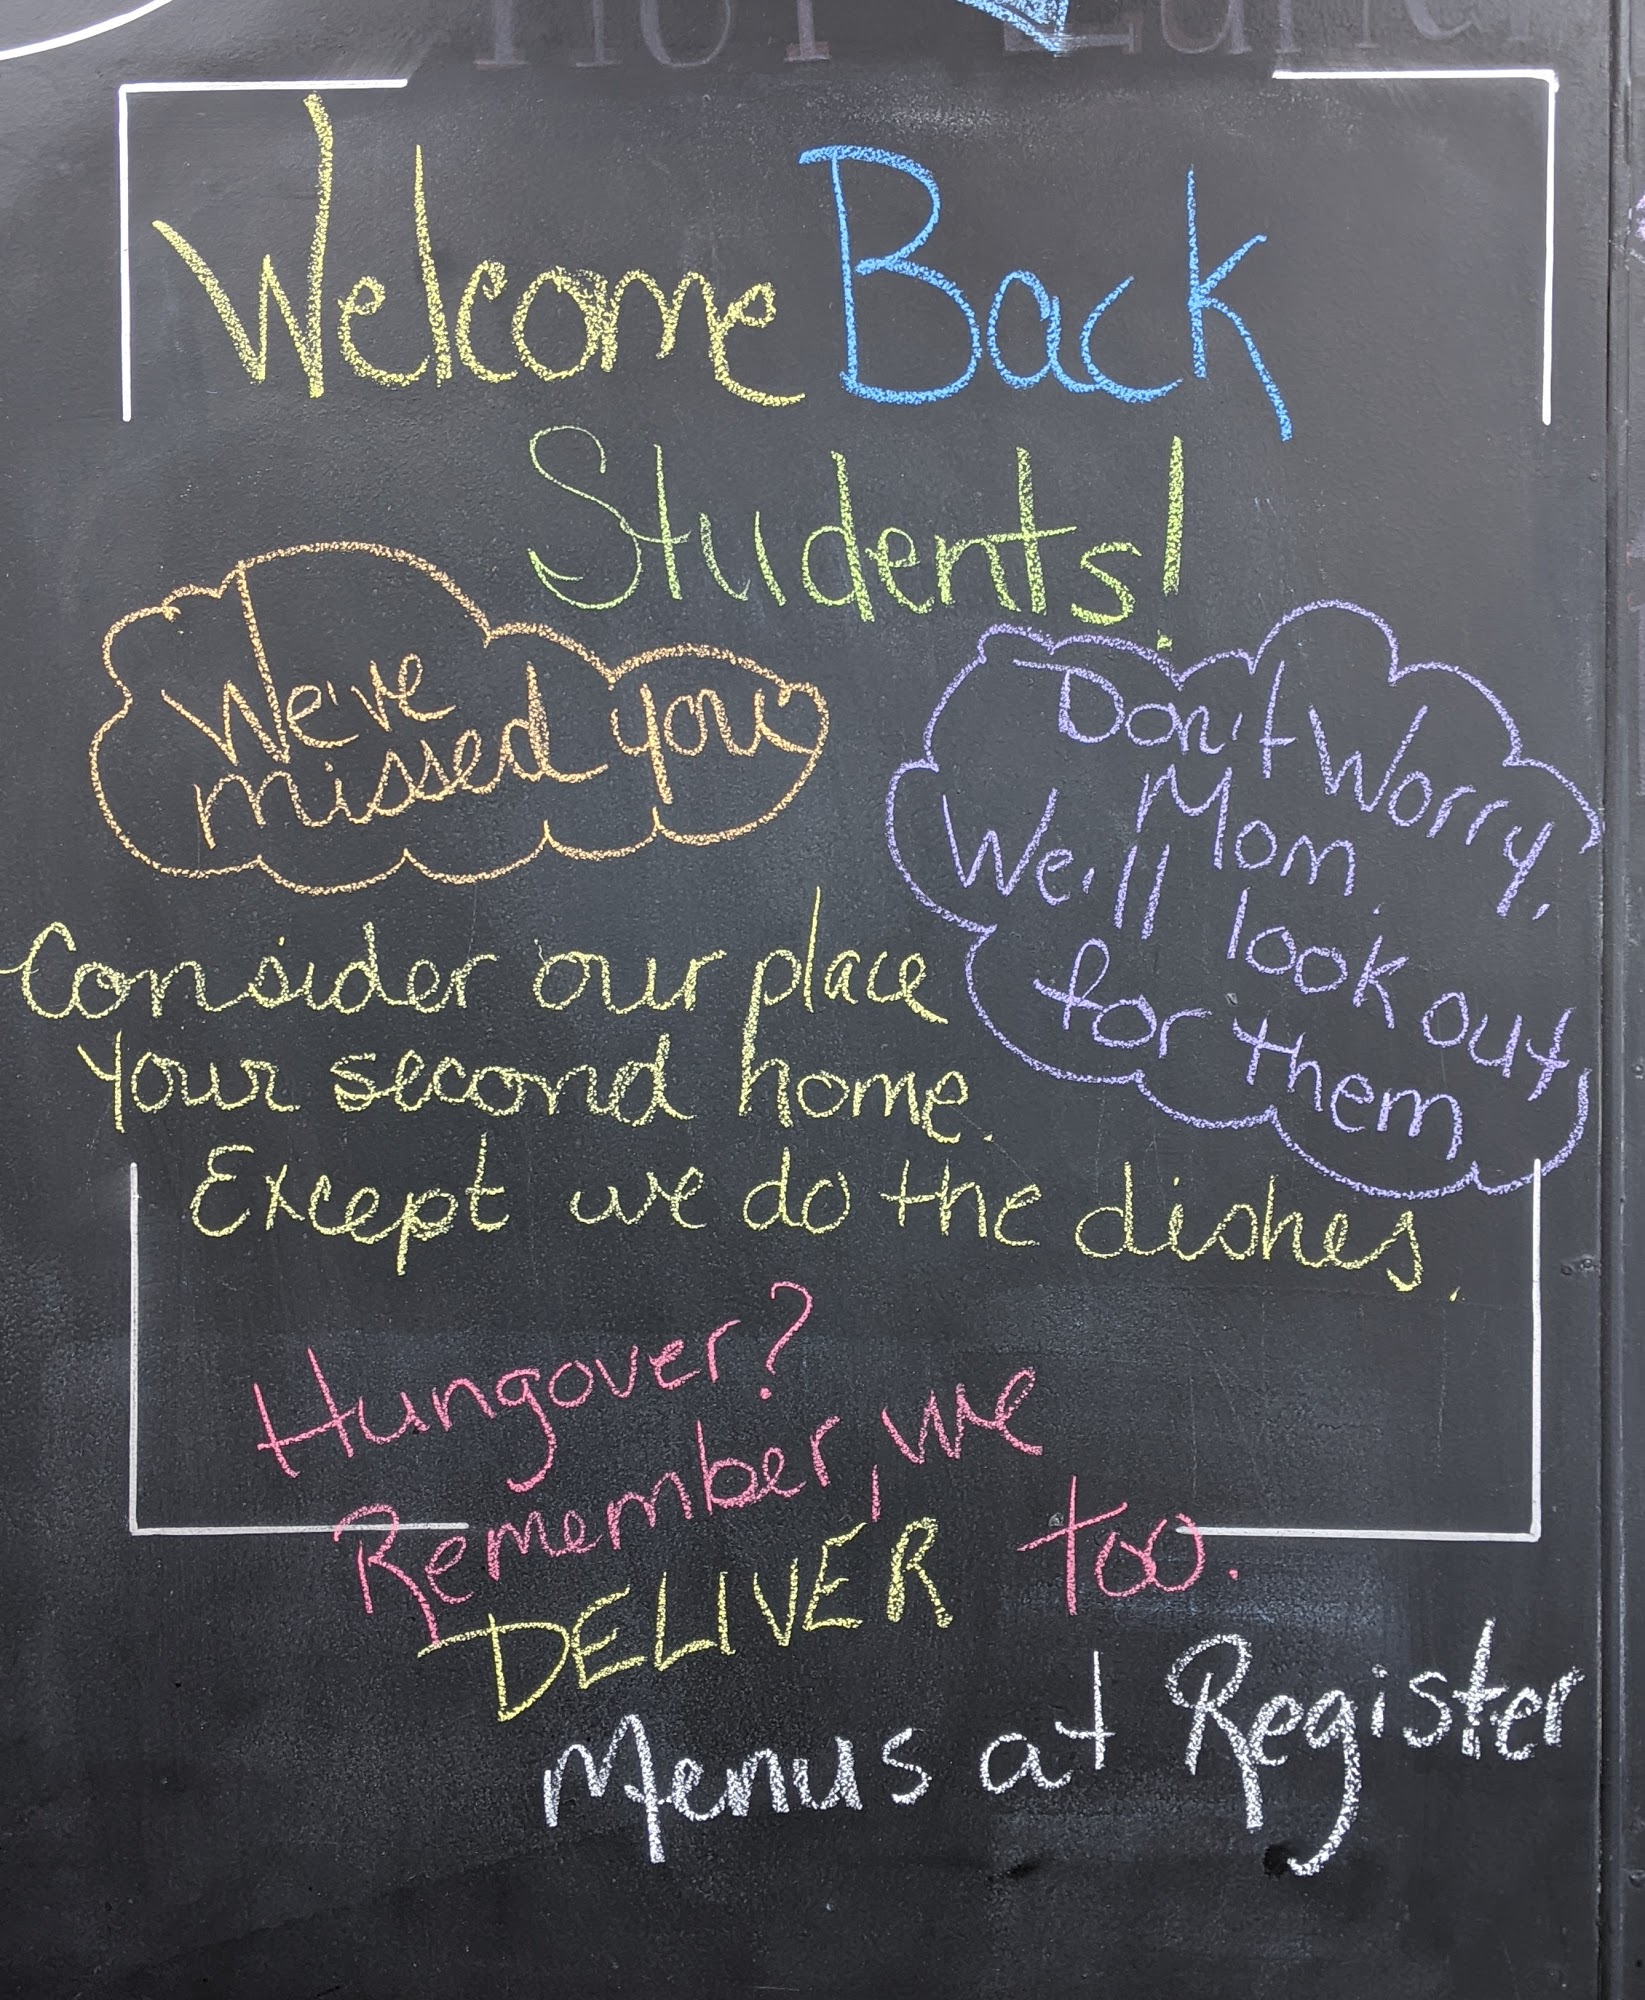 Hot Lunch
Welcome Back
Students!
We've
missed you
Don't Worry,
Mom.
We'll look out
for them
Consider our place
your second home.
Except we do the dishes.
Hungover?
Remember, we
DELIVER too.
Menus at Register